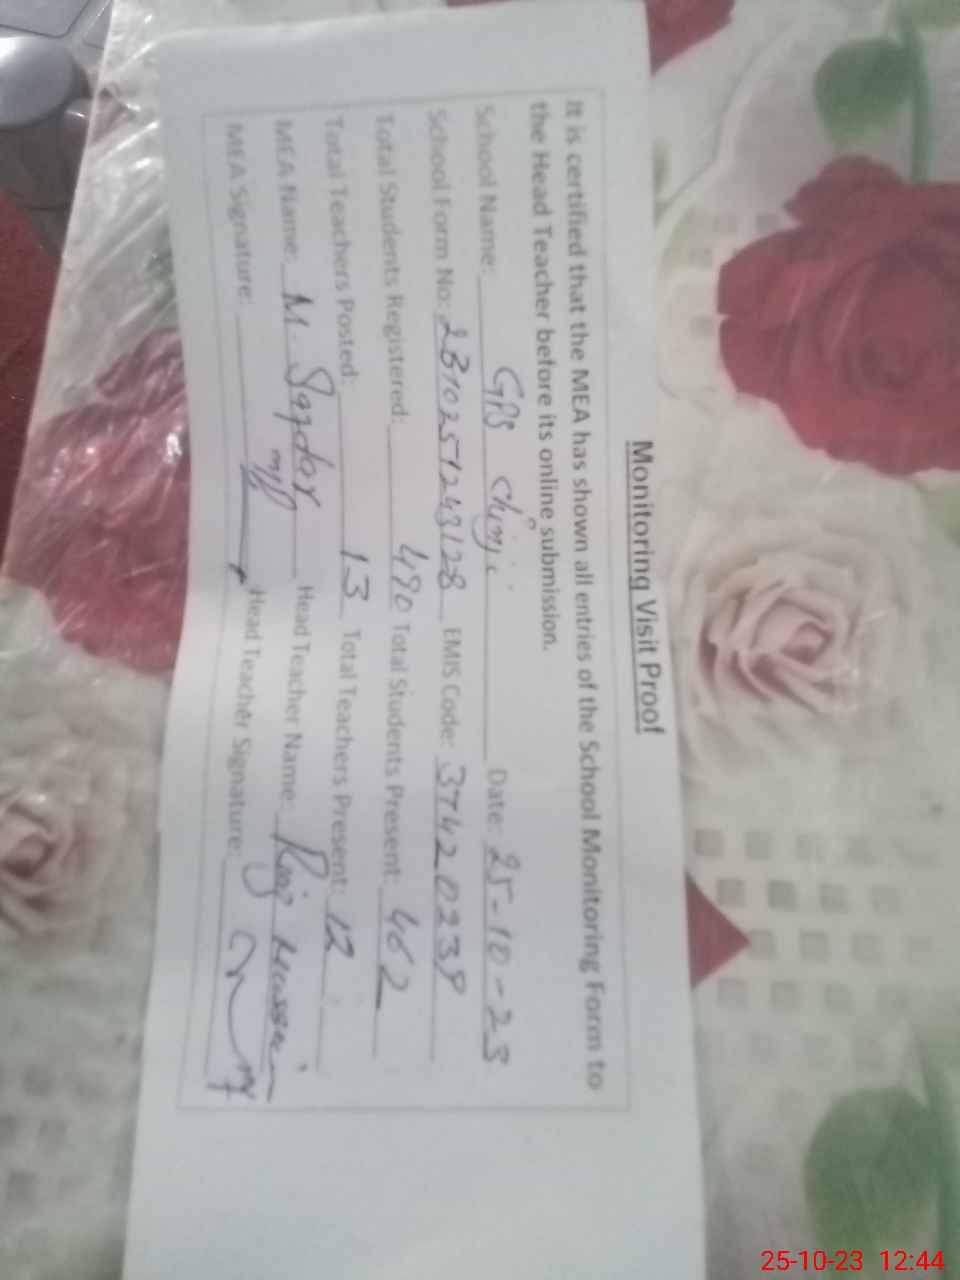 Monitoring Visit Proof
It is certified that the MEA has shown all entries of the School Monitoring Form to
the Head Teacher before its online submission.
School Name: GPS Chinji Date: 25-10-23
School Form No: 2310251243128 EMIS Code: 37420239
Total Students Registered: 490 Total Students Present: 462
Total Teachers Posted: 13 Total Teachers Present: 12
MEA Name: M. Head Teacher Name: Hussain
MEA Signature: Head Teacher Signature:
25-10-23 12:44